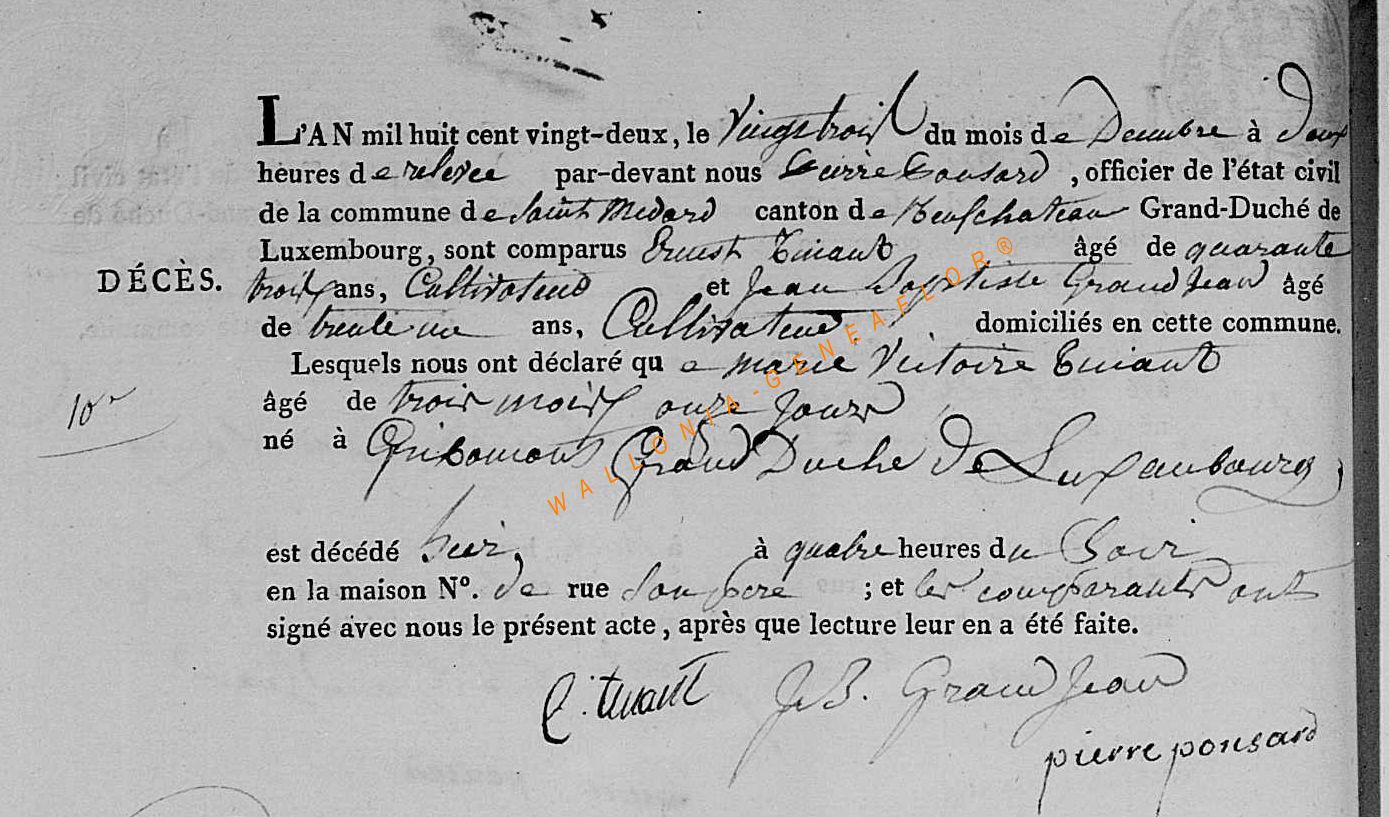 L'AN mil huit cent vingt-deux, le Vingtroix du mois de Decembre à deux
heures de relevée par-devant nous Pierre Ponsard, officier de l'état civil
de la commune de Saint Medard canton de Neufchateau Grand-Duché de
Luxembourg, sont comparus Ernest Tinant âgé de quarante
DÉCÈS. troix ans, Cultivateur et Jean Baptiste Grand Jean âgé
de trente un ans, Cultivateur, domiciliés en cette commune.
Lesquels nous ont déclaré que marie Victoire Tinant
âgé de trois moix onze Jours
10
né à Gribomont Grand Duche de Luxanbourg,
est décédé hier, à quatre heures du Soir
en la maison N°. de rue Son pere ; et les comparants ont
signé avec nous le présent acte, après que lecture leur en a été faite.
E. tinant J B. Grand Jean
pierre ponsard
WALLONIA-GENEAFLOR®